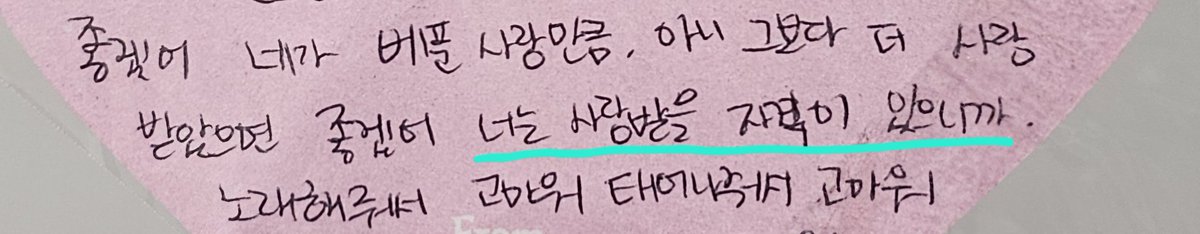 좋겠어 네가 베푼 사랑만큼, 아니 그보다 더 사랑
받았으면 좋겠어 너는 사랑받을 자격이 있으니까.
노래해줘서 고마워 태어나줘서 고마워
From